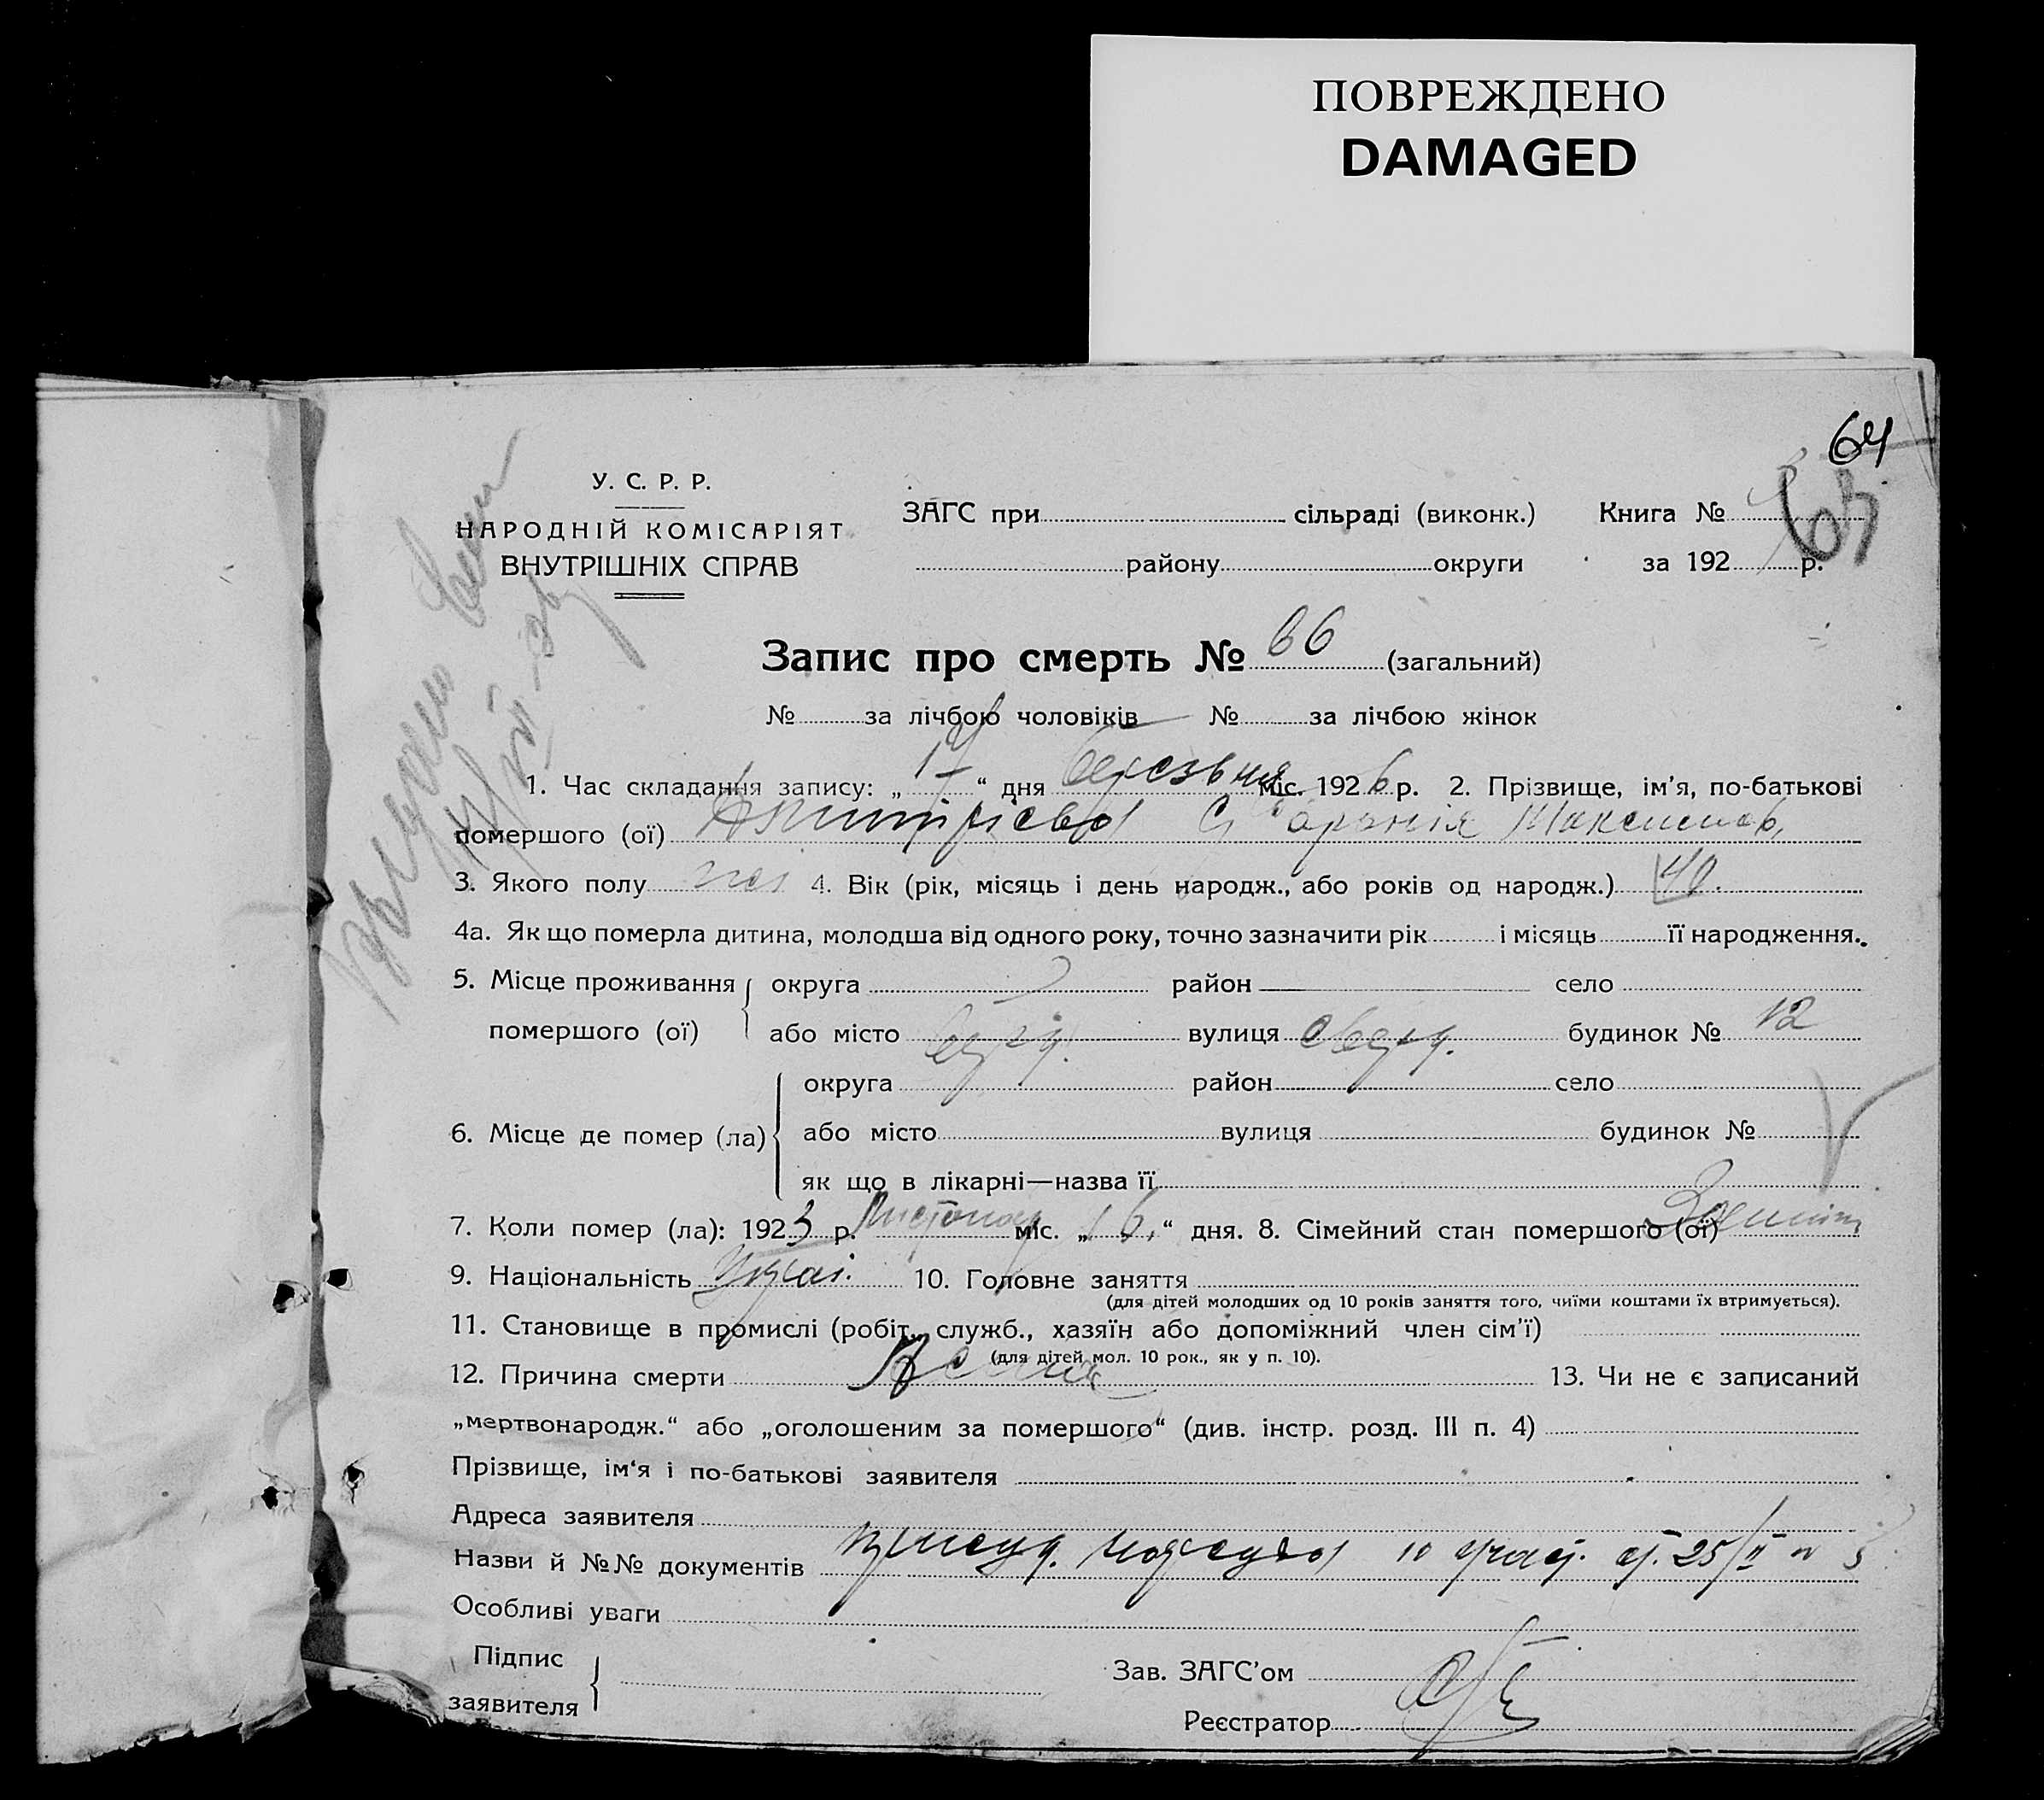 ПОВРЕЖДЕНО
DAMAGED
64
У. С. Р. Р.
НАРОДНІЙ КОМІСАРІЯТ
ВНУТРІШНІХ СПРАВ
ЗАГС при сільраді (виконк.) Книга №
району округи за 192 р.
Запис про смерть № 66 (загальний)
№ за лічбою чоловіків № за лічбою жінок
1. Час складання запису: „17“ дня березьня міс. 1926 р. 2. Прізвище, ім'я, по-батькові
помершого (ої)
3. Якого полу 4. Вік (рік, місяць і день народж., або років од народж.) 40.
4а. Як що померла дитина, молодша від одного року, точно зазначити рік і місяць її народження.
5. Місце проживання округа район село
помершого (ої) або місто вулиця будинок № 12
округа район село
6. Місце де помер (ла) або місто вулиця будинок №
як що в лікарні—назва її
7. Коли помер (ла): 1923 р. Листопад міс. „16.“ дня. 8. Сімейний стан помершого (ої)
9. Національність 10. Головне заняття
(для дітей молодших од 10 років заняття того, чиїми коштами їх втримується).
11. Становище в промислі (робіт., служб., хазяїн або допоміжний член сім'ї)
(для дітей мол. 10 рок., як у п. 10).
12. Причина смерти 13. Чи не є записаний
„мертвонародж.“ або „оголошеним за помершого“ (див. інстр. розд. III п. 4)
Прізвище, ім'я і по-батькові заявителя
Адреса заявителя
Назви й №№ документів нарсуда 10 25/II
Особливі уваги
Підпис
заявителя
Зав. ЗАГС'ом
Реєстратор